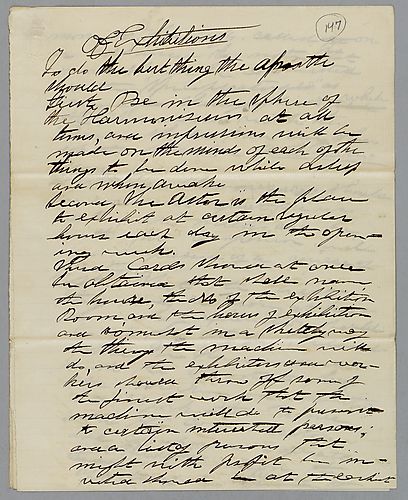 147
Of Exhibitions
To do the best thing the apostle
should
First, Be in the sphere of
the Harmonizers at all
times, and impressions will be
made on the minds of each of the
things to be done while asleep
and when awake
Second, The Astor is the place
to exhibit at certain regular
hours each day in the open-
ing week.
Third, Cards should at once
be obtained that shall name
the house, the No of the exhibition
Room and the hours of exhibition
and in a sketchy way
the things the machine will
do, and the exhibitors and wor-
kers should throw off some of
the finest work that the
machine will do to present
to certain interested persons;
and lady persons that
might with profit be in-
vited should be at the